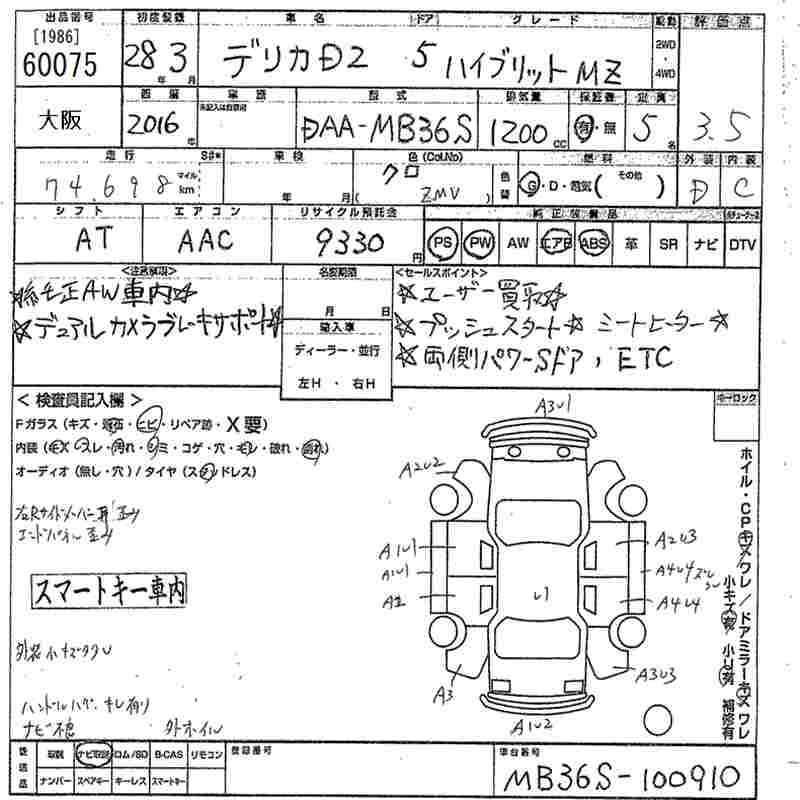 出品番号 初度登録 車名 ドア グレード 駆動 評価点
[1986]
60075 28 年 3 月 デリカD2 5 ハイブリットMZ 2WD ・ 4WD 3.5
西暦 車歴 型式 排気量 保証書 定員
大阪 2016 年 未記入は自家用 DAA-MB36S 1200 cc 有・無 5 名
走行 S#* 車検 色(Col.No) 色替 燃料 外装 内装
74,698 マイル km 年 月 クロ ( ZMV ) G・D・電気( その他 ) D C
シフト エアコン リサイクル預託金 純正装備品
AT AAC 9330 円 PS PW AW エアB ABS 革 SR ナビ DTV
<注意事項> 名変期限 <セールスポイント>
☆純正AW車内☆ 月 日 ☆ユーザー買取☆
☆デュアルカメラブレーキサポート☆ 輸入車 ☆プッシュスタート☆ シートヒーター☆
ディーラー・並行 ☆両側パワーSドア, ETC
左H ・ 右H
キーロック
< 検査員記入欄 >
Fガラス(キズ・飛石・ヒビ・リペア跡・X要)
内装(キズ・スレ・汚れ・シミ・コゲ・穴・モレ・破れ・割れ)
オーディオ(無し・穴)/タイヤ(スタッドレス)
エンドパネル歪み
スマートキー車内
外装小キズタクU
ハンドルハゲ・キレ有り
ナビ不良 外ホイル
A3U1
A2U2
A1U1
A1U1
A1
A3
A2U3
A4U4
A4U4
U1
A3U3
A1U2
ホイル・CPキズワレ/ドアミラーキズワレ
小キズ有 小U有 補修有
後送品 取説 ナビ取説 ロム/SD B-CAS リモコン 登録番号 車台番号
ナンバー スペアキー キーレス スマートキー MB36S-100910